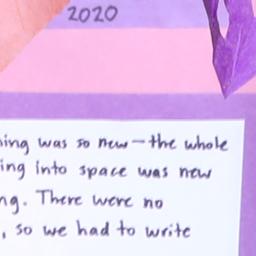 2020
was so new—the whole
into space was new
There were no
, so we had to write